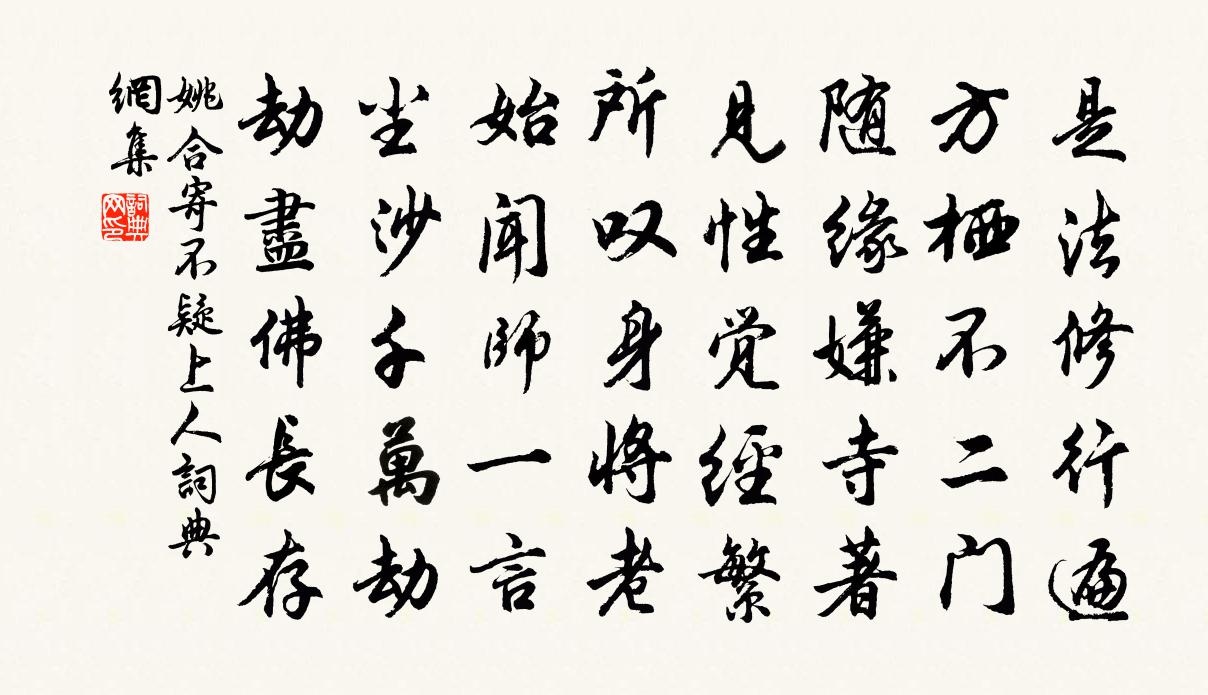 是法修行遍
方栖不二门
随缘嫌寺著
見性觉經繁
所叹身將老
始闻師一言
尘沙千萬劫
劫盡佛長存
姚合寄不疑上人詞典
網集
詞典
网印